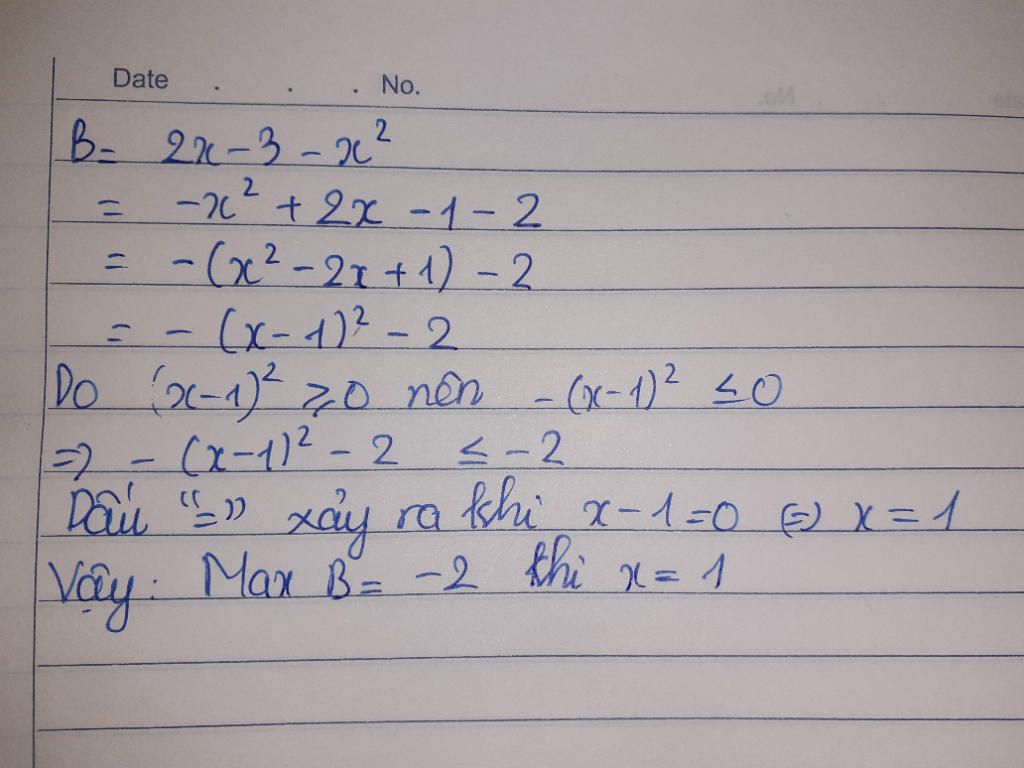 Date . . . No.
B= 2x-3-x²
= -x² + 2x -1-2
= -(x²-2x+1) -2
= -(x-1)² -2
Do (x-1)² ⩾0 nên -(x-1)² ≤0
=> -(x-1)² -2 ≤ -2
Dấu "=" xảy ra khi x-1=0 (=) x=1
Vậy: Max B= -2 khi x= 1